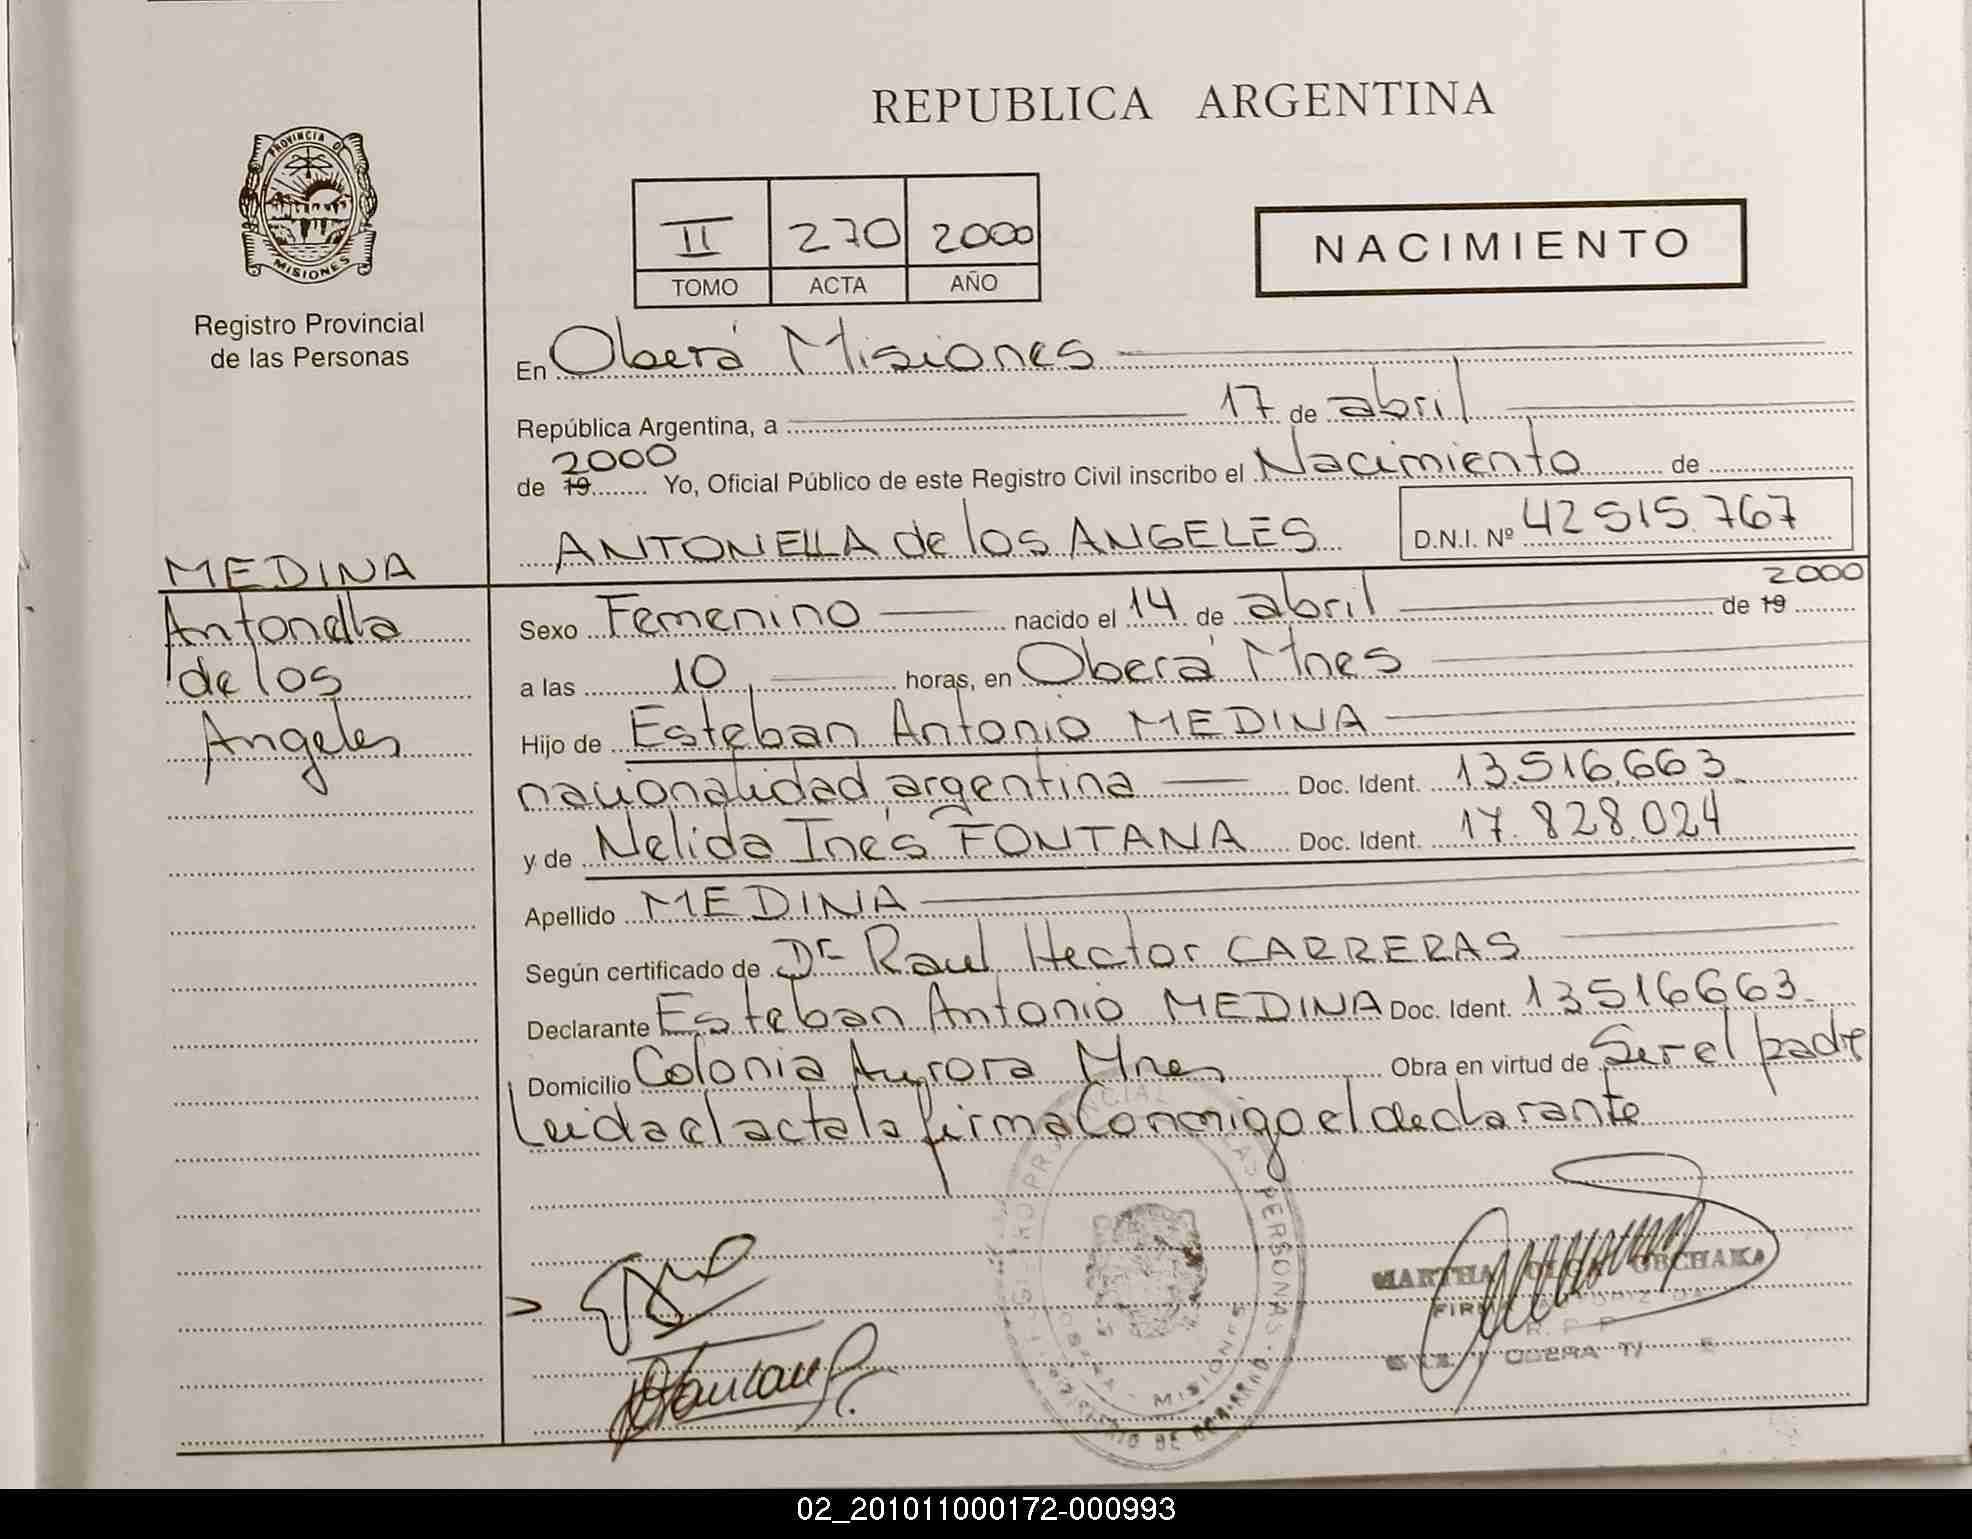 REPUBLICA ARGENTINA
PROVINCIA DE
MISIONES
Registro Provincial
de las Personas
II 270 2000
TOMO ACTA AÑO
NACIMIENTO
En Oberá Misiones
República Argentina, a 17 de abril
2000
de 19 Yo, Oficial Público de este Registro Civil inscribo el Nacimiento de
ANTONELLA de los ANGELES D.N.I. Nº 42 515.767
MEDINA
Antonella
de los
Angeles
2000
Sexo Femenino nacido el 14 de abril de 19
a las 10 horas, en Oberá Mnes
Hijo de Esteban Antonio MEDINA
nacionalidad argentina Doc. Ident. 13.516.663
y de Nelida Inés FONTANA Doc. Ident. 17.828.024
Apellido MEDINA
Según certificado de Dr Raul Hector CARRERAS
Declarante Esteban Antonio MEDINA Doc. Ident. 13516663
Domicilio Colonia Aurora Mnes Obra en virtud de Ser el padre
Leida el acta la firma Conmigo el declarante
PERSONAS
MISIONES
MARTHA OLGA
FIRMA AUTORIZADA
R. P. P.
OBERA
02_201011000172-000993